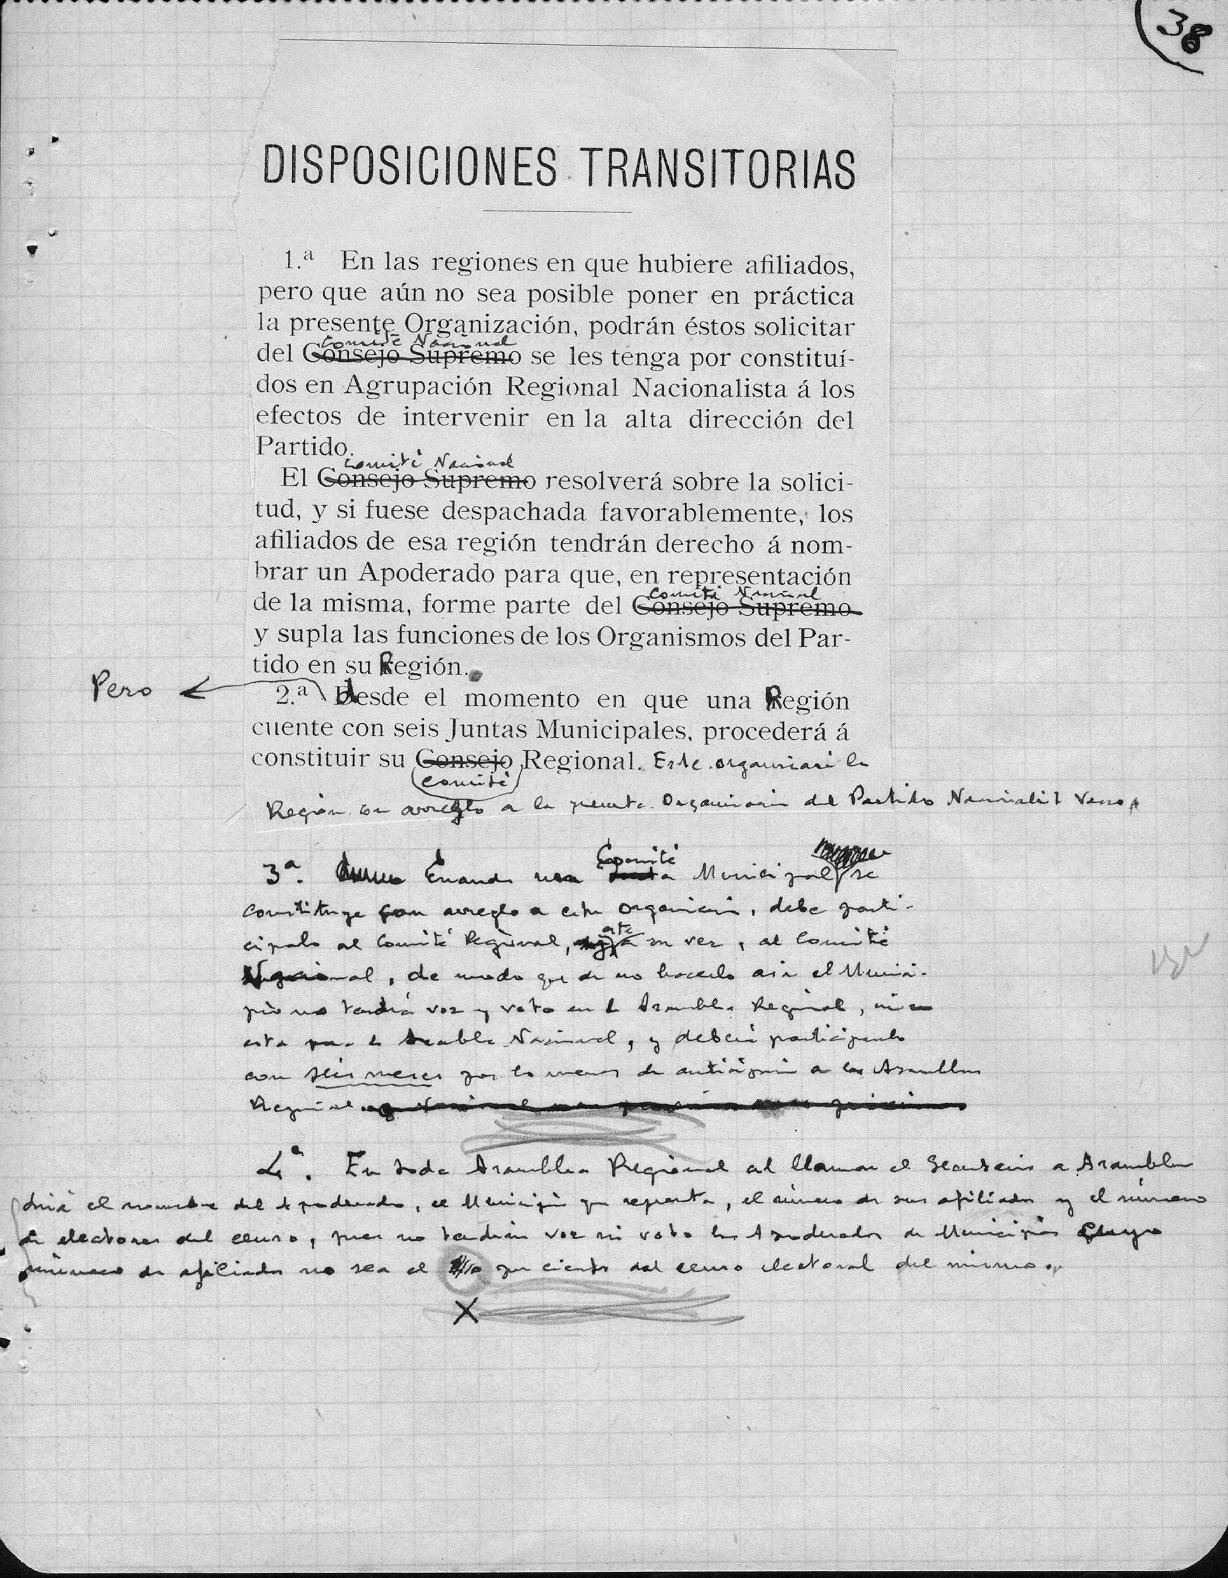 38
DISPOSICIONES TRANSITORIAS
1.ª En las regiones en que hubiere afiliados,
pero que aún no sea posible poner en práctica
la presente Organización, podrán éstos solicitar
Comité Nacional
del Consejo Supremo se les tenga por constituí-
dos en Agrupación Regional Nacionalista á los
efectos de intervenir en la alta dirección del
Partido.
Comité Nacional
El Consejo Supremo resolverá sobre la solici-
tud, y si fuese despachada favorablemente, los
afiliados de esa región tendrán derecho á nom-
brar un Apoderado para que, en representación
Comité Nacional
de la misma, forme parte del Consejo Supremo
y supla las funciones de los Organismos del Par-
tido en su Región.
Pero
2.ª desde el momento en que una Región
cuente con seis Juntas Municipales, procederá á
constituir su Consejo Regional. Este organizará la
Comité
Región con arreglo a la presente Organización del Partido Nacionalista Vasco.
Comité
3ª. Cuando una Junta Municipal se
constituya con arreglo a esta organización, debe parti-
ciparlo al Comité Regional, este a su vez, al Comité
Nacional, de modo que de no hacerlo así el Munici-
pio no tendrá voz y voto en la Asamblea Regional, ni
esta para la Asamblea Nacional, y deberá participarlo
con seis meses por lo menos de anticipación a las Asambleas
Regional
4ª. En toda Asamblea Regional al llamar el Secretario a Asamblea
dirá el nombre del Apoderado, el Municipio que representa, el número de sus afiliados y el número
de electores del censo, pues no tendrán voz ni voto los Apoderados de Municipios cuyo
número de afiliados no sea el 10 por ciento del censo electoral del mismo.
X